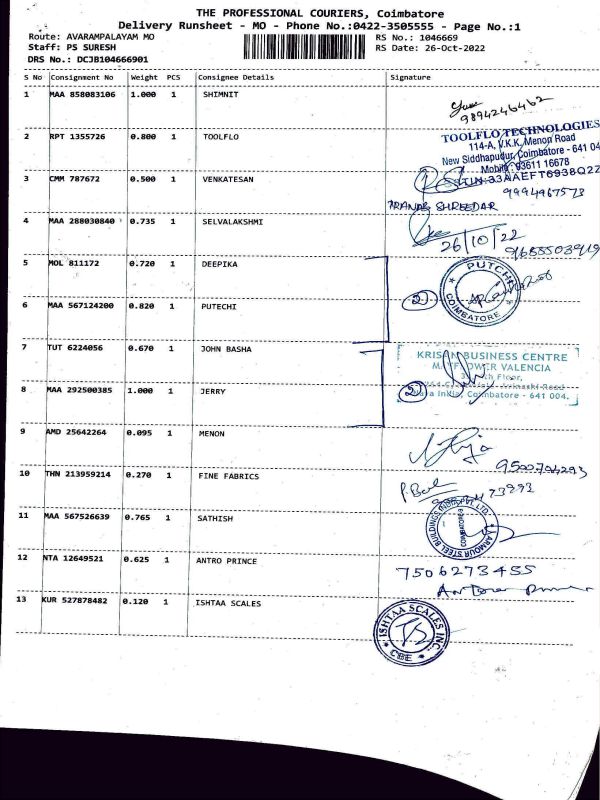 THE PROFESSIONAL COURIERS, Coimbatore
Delivery Runsheet - MO - Phone No.:0422-3505555 - Page No.:1
Route: AVARAMPALAYAM MO RS No.: 1046669
Staff: PS SURESH RS Date: 26-Oct-2022
DRS No.: DCJB104666901
S No Consignment No Weight PCS Consignee Details Signature
1 MAA 858083106 1.000 1 SHIMNIT
9894246462
2 RPT 1355726 0.800 1 TOOLFLO
TOOLFLO TECHNOLOGIES
114-A, V.K.K. Menon Road
New Siddhapudur, Coimbatore - 641 04
Mobile: 93611 16678
3 CMM 787672 0.500 1 VENKATESAN
GSTIN:33AAEFT6938Q2Z
9994967573
PRANAB SHREEDAR
4 MAA 288030840 0.735 1 SELVALAKSHMI
26/10/22
5 MOL 811172 0.720 1 DEEPIKA
PUTECHI
COIMBATORE
2
6 MAA 567124200 0.820 1 PUTECHI
7 TUT 6224056 0.670 1 JOHN BASHA
KRISH BUSINESS CENTRE
MAYFLOWER VALENCIA
Floor,
8 MAA 292500385 1.000 1 JERRY
2
Avinashi Road
India, Coimbatore - 641 004.
9 AMD 25642264 0.095 1 MENON
9500704293
10 THN 213959214 0.270 1 FINE FABRICS
11 MAA 567526639 0.765 1 SATHISH
ARMOUR STEEL BUILDINGS INDIA PVT. LTD.
COIMBATORE
12 NTA 12649521 0.625 1 ANTRO PRINCE
7506273455
13 KUR 527878482 0.120 1 ISHTAA SCALES
ISHTAA SCALES INC.
CBE